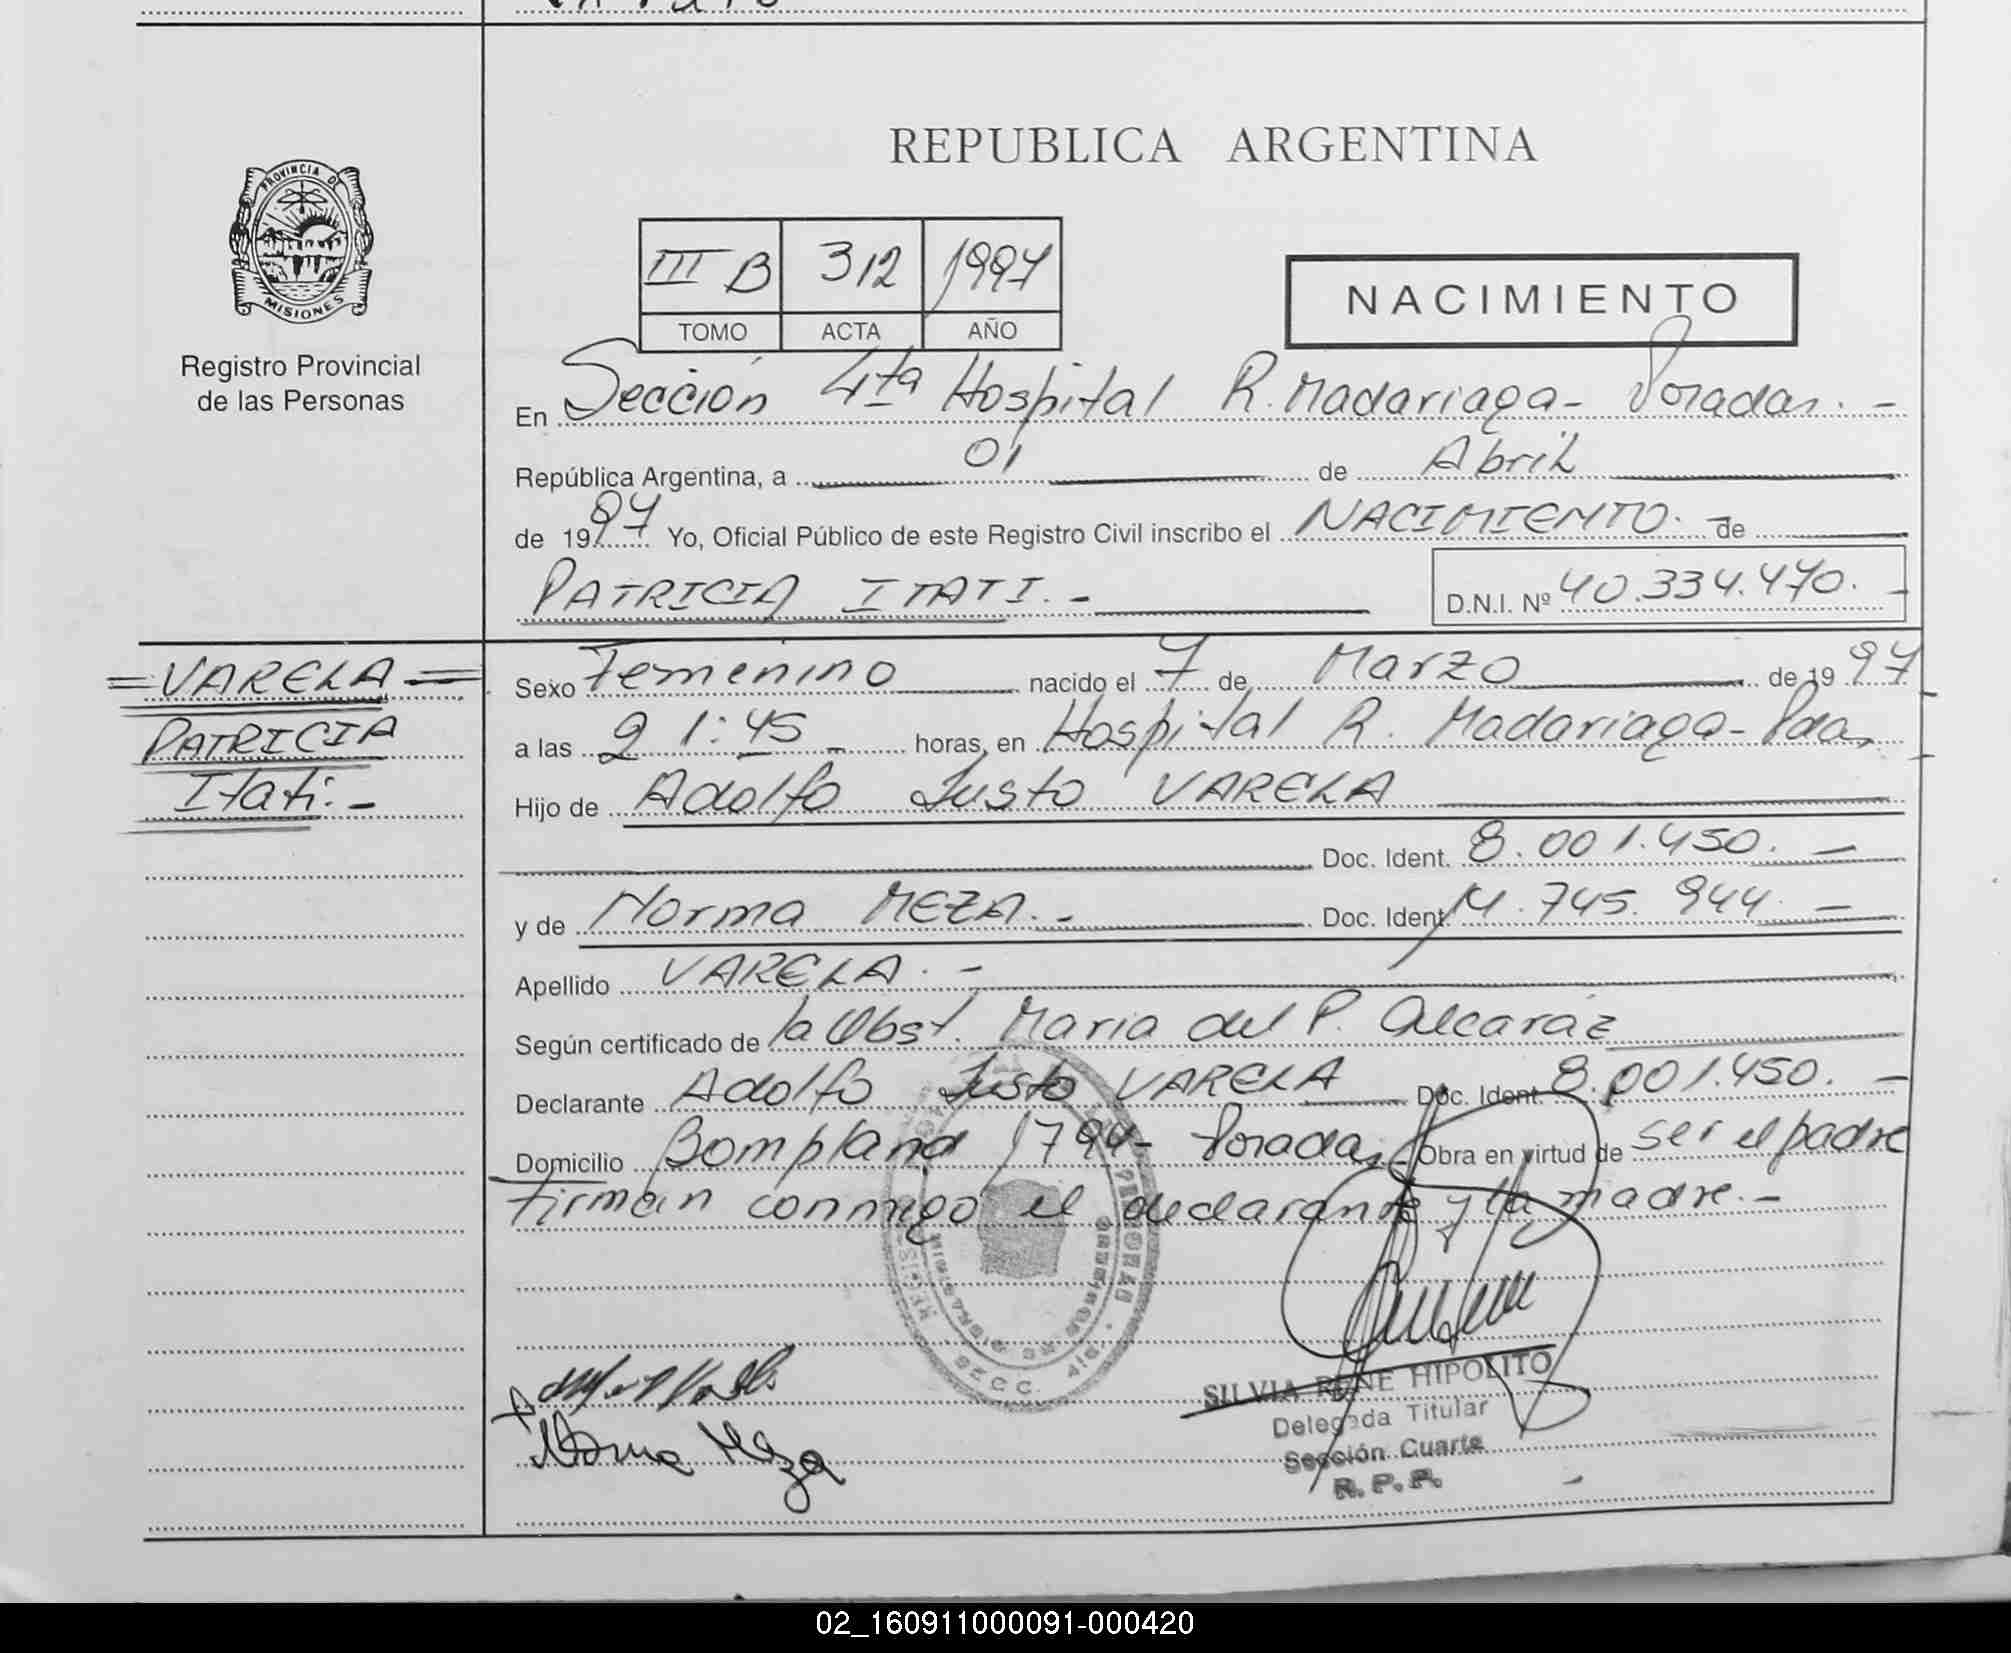 REPUBLICA ARGENTINA
PROVINCIA DE
MISIONES
Registro Provincial
de las Personas
III B 312 1997
TOMO ACTA AÑO
NACIMIENTO
En Sección 4ta Hospital R. Madariaga - Posadas. -
República Argentina, a 01 de Abril
de 1997 Yo, Oficial Público de este Registro Civil inscribo el NACIMIENTO. - de
PATRICIA ITATI. -
D.N.I. Nº 40.334.470. -
= VARELA =
PATRICIA
Itati. -
Sexo Femenino nacido el 7 de Marzo de 1997
a las 21:45 - horas, en Hospital R. Madariaga - Pdas. -
Hijo de Adolfo Justo VARELA
Doc. Ident. 8.001.450. -
y de Norma MEZA. - Doc. Ident. 14.745.944. -
Apellido VARELA. -
Según certificado de la Obst. Maria del P. Alcaráz
Declarante Adolfo Justo VARELA Doc. Ident. 8.001.450. -
Domicilio Bompland 1794 - Posadas - Obra en virtud de ser el padre
firman conmigo el declarante y la madre. -
Norma Meza
SILVIA RENE HIPOLITO
Delegada Titular
Sección Cuarta
R. P. P.
02_160911000091-000420